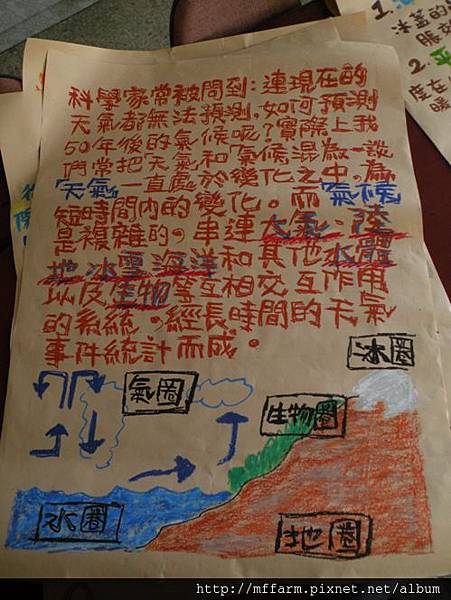 科學家常被問到：連現在的
天氣都無法預測，如何預測
50年後的氣候呢？實際上我
們常把「天氣」和「氣候」混為一談
「天氣」一直處於變化之中，為
短時間內的變化。而「氣候」
是複雜的，串連大氣、陸
地、冰雪、海洋和其他水體
以及生物等互相交互作用
的系統，經長時間的天氣
事件統計而成。
冰圈
氣圈
生物圈
水圈
地圈
1.
冰蓋的
2.平
度在
暖
http://mffarm.pixnet.net/album